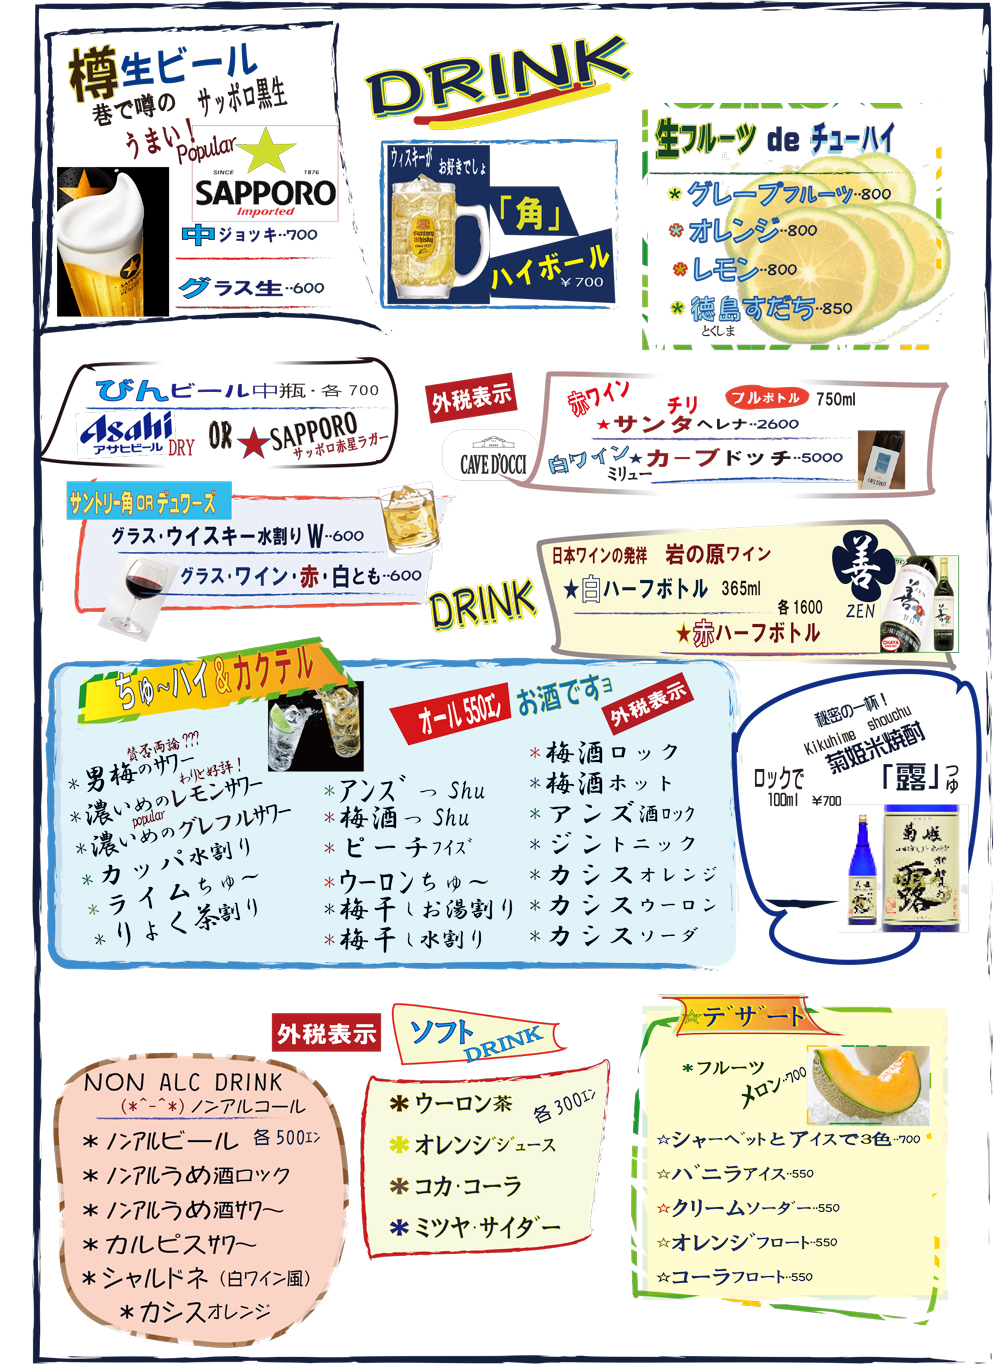 樽生ビール
巷で噂の サッポロ黒生
うまい！
Popular
SINCE 1876
SAPPORO
Imported
中ジョッキ··700
グラス生··600
DRINK
ウィスキーが
お好きでしょ
「角」
ハイボール
￥700
生フルーツ de チューハイ
グレープフルーツ··800
オレンジ··800
レモン··800
徳島すだち··850
とくしま
びんビール中瓶·各 700
Asahi
アサヒビール
DRY
OR
★SAPPORO
サッポロ赤星ラガー
外税表示
赤ワイン チリ フルボトル 750ml
★サンタヘレナ··2600
CAVE D'OCCI
白ワイン★カーブドッチ··5000
ミリュー
サントリー角ORデュワーズ
グラス·ウイスキー水割りW··600
グラス·ワイン·赤·白とも··600
DRINK
日本ワインの発祥 岩の原ワイン
★白ハーフボトル 365ml
各1600
★赤ハーフボトル
善
ZEN
ちゅ～ハイ&カクテル
オール550ｴﾝ お酒ですョ
外税表示
賛否両論???
＊男梅のサワー
わりと好評！
＊濃いめのレモンサワー
popular
＊濃いめのグレフルサワー
＊カッパ水割り
＊ライムちゅ～
＊りょく茶割り
＊アンズっShu
＊梅酒っShu
＊ピーチフイズ
＊ウーロンちゅ～
＊梅干しお湯割り
＊梅干し水割り
＊梅酒ロック
＊梅酒ホット
＊アンズ酒ロック
＊ジントニック
＊カシスオレンジ
＊カシスウーロン
＊カシスソーダ
秘密の一杯！
Kikuhime shouchu
菊姫米焼酎
ロックで「露」つゆ
100ml ￥700
菊姫
露
外税表示
ソフト
DRINK
NON ALC DRINK
(*^-^*)ノンアルコール
＊ノンアルビール 各500ｴﾝ
＊ノンアルうめ酒ロック
＊ノンアルうめ酒サワ～
＊カルピスサワ～
＊シャルドネ（白ワイン風）
＊カシスオレンジ
＊ウーロン茶 各300ｴﾝ
＊オレンジジュース
＊コカ·コーラ
＊ミツヤ·サイダー
☆デザート
＊フルーツ
メロン··700
☆シャーベットとアイスで3色··700
☆バニラアイス··550
☆クリームソーダー··550
☆オレンジフロート··550
☆コーラフロート··550